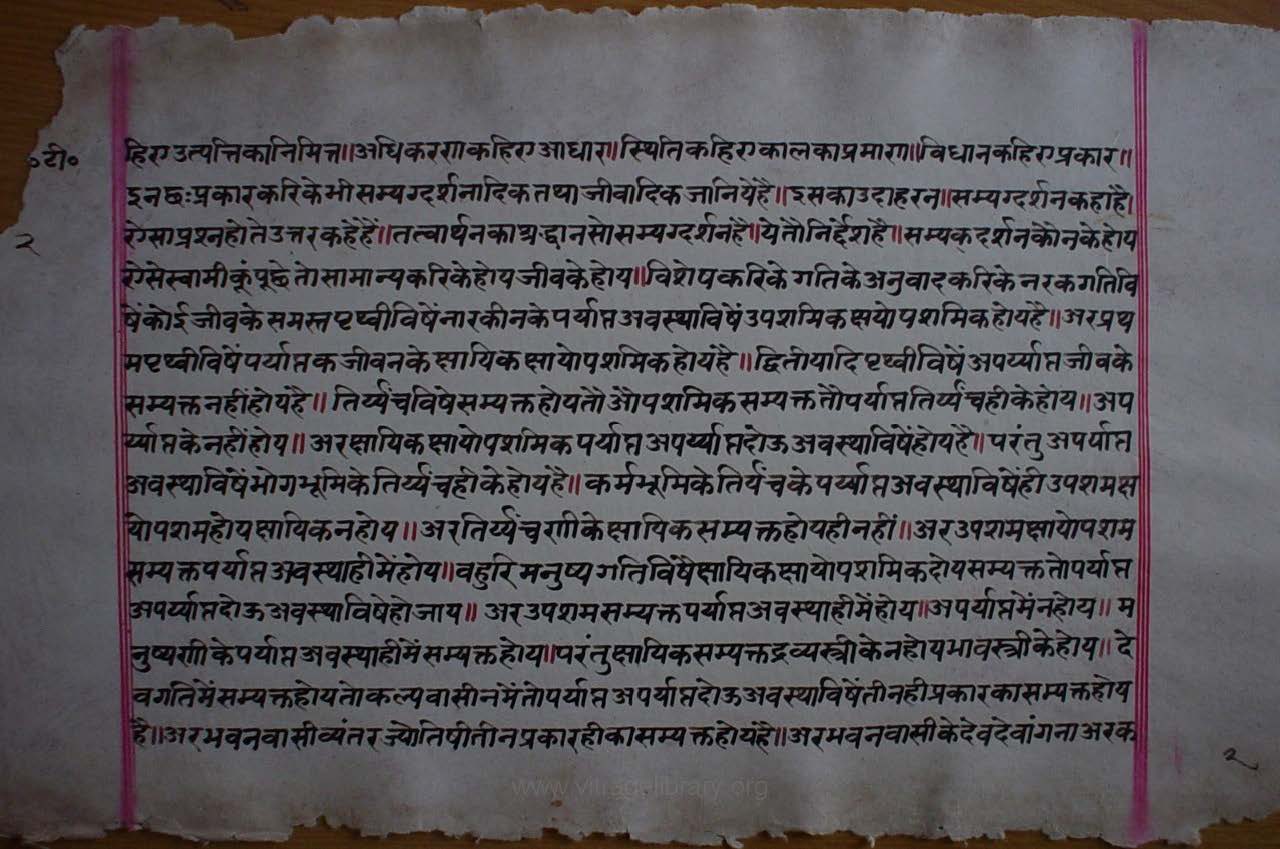 ०टी०
२
हिए उत्पत्तिका निमित्त॥ अधिकरण कहिए आधार॥ स्थिति कहिए कालका प्रमाण॥ विधान कहिए प्रकार॥
इन छः प्रकार करिके भी सम्यग्दर्शनादिक तथा जीवादिक जानिये है॥ इसका उदाहरन॥ सम्यग्दर्शन कहां है।
ऐसा प्रश्न होते उत्तर कहे हैं॥ तत्वार्थनका श्रद्धान सो सम्यग्दर्शन है॥ ये तौ निर्देश है॥ सम्यक दर्शन कौनके होय
ऐसे स्वामीकूं पूछे तो सामान्य करिके होय जीवके होय॥ विशेष करिके गतिके अनुवाद करिके नरक गतिवि
षें कोई जीवके समस्त पृथ्वीविषें नारकीनके पर्याप्त अवस्थाविषें उपशमिक क्षयोपशमिक होय है॥ अर प्रथ
म पृथ्वीविषें पर्याप्तक जीवनके क्षायिक क्षायोपशमिक होय है॥ द्वितीयादि पृथ्वीविषें अपर्य्याप्त जीवके
सम्यक्त नहीं होय है॥ तिर्य्यंचविषे सम्यक्त होय तौ औपशमिक सम्यक्त तौ पर्याप्त तिर्य्यंचहीके होय॥ अप
र्य्याप्तके नहीं होय॥ अर क्षायिक क्षायोपशमिक पर्याप्त अपर्य्याप्त दोऊ अवस्थाविषें होय है॥ परंतु अपर्याप्त
अवस्थाविषें भोगभूमिके तिर्य्यंचहीके होय है॥ कर्मभूमिके तिर्यंचके पर्य्याप्त अवस्थाविषें ही उपशम क्ष
योपशम होय क्षायिक न होय॥ अर तिर्य्यंचणीके क्षायिक सम्यक्त होय ही नहीं॥ अर उपशम क्षायोपशम
सम्यक्त पर्याप्त अवस्थाही में होय॥ वहुरि मनुष्य गतिविषै क्षायिक क्षायोपशमिक दोय सम्यक्त तो पर्याप्त
अपर्य्याप्त दोऊ अवस्थाविषे हो जाय॥ अर उपशम सम्यक्त पर्याप्त अवस्थाही में होय॥ अपर्याप्तमें न होय॥ म
नुष्यणीके पर्याप्त अवस्थाही में सम्यक्त होय॥ परंतु क्षायिक सम्यक्त द्रव्यस्त्रीके न होय भावस्त्रीके होय॥ दे
वगतिमें सम्यक्त होय तो कल्पवासीनमें तो पर्याप्त अपर्याप्त दोऊ अवस्थाविषें तीनही प्रकारका सम्यक्त होय
है॥ अर भवनवासी व्यंतर ज्योतिषी तीन प्रकारहीका सम्यक्त होय है॥ अर भवनवासीके देव देवांगना अर क
२
www.vitragvlibrary.org